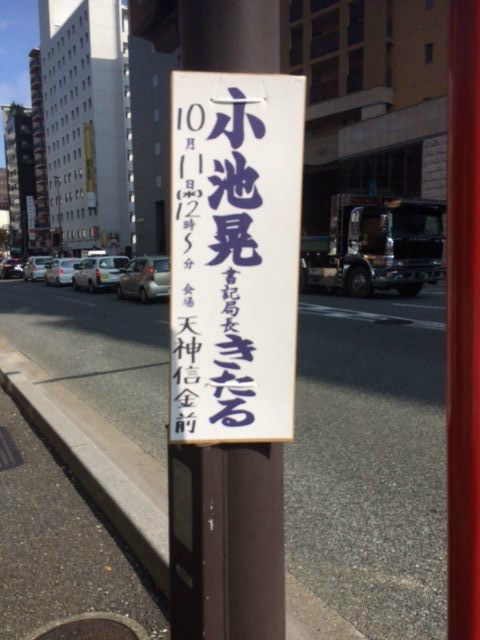 小池晃書記局長きたる
10月11日㈬12時〜分 会場 天神信金前